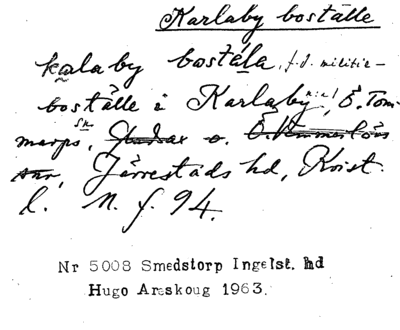 Karlaby boställe
kalaby bostäla, f.d. militie-
boställe i Karlaby, Ö. Tom-
marps sn, Järrestads hd, Krist.
l. N. f. 94.
Nr 5008 Smedstorp Ingelst. hd
Hugo Areskoug 1963.